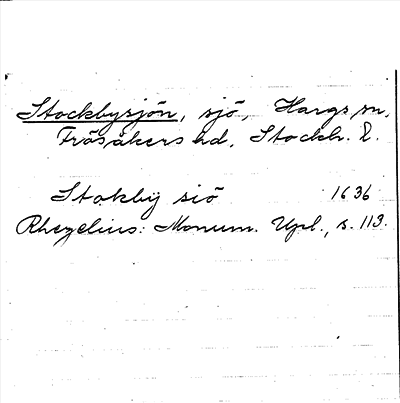 Stockbysjön, sjö, Hargs sn,
Frösåkers hd, Stockh. l.
Stokbÿ siö 1636
Rhezelius: Monum. Upl., s. 113.